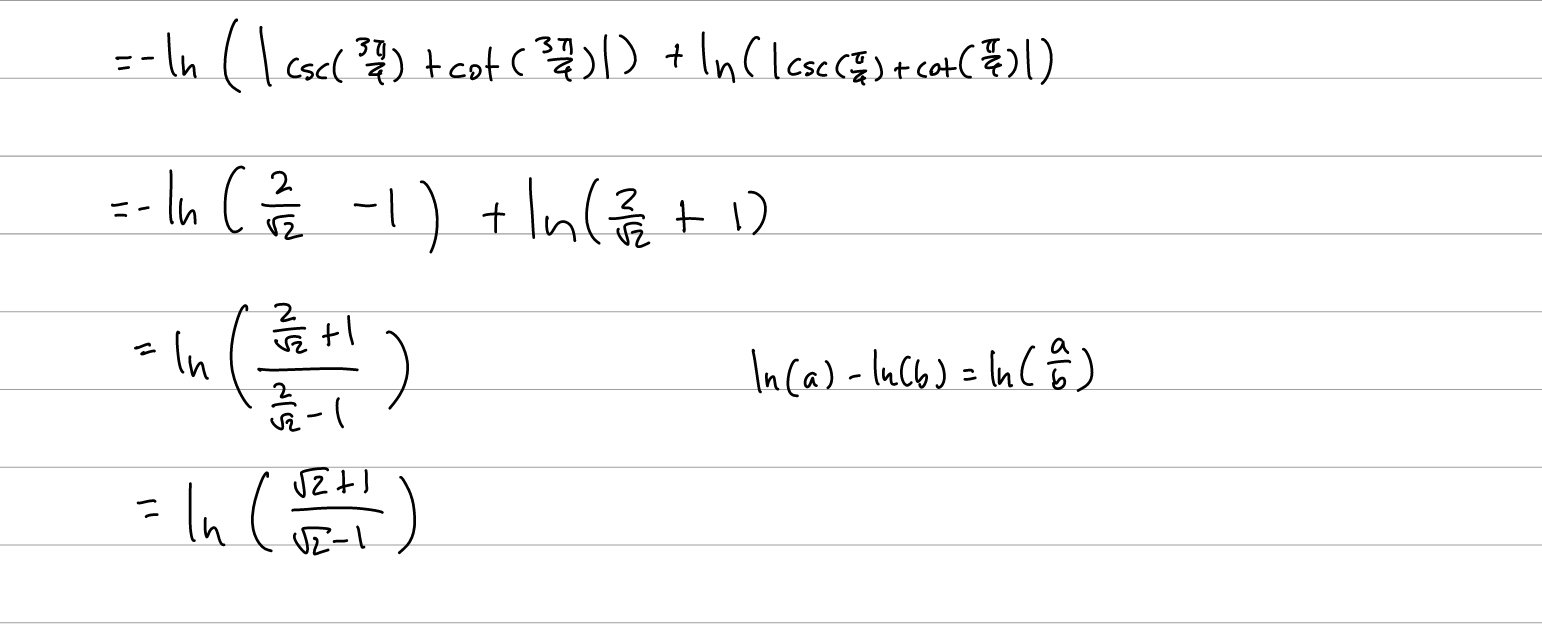 = -ln(|csc(3π/4) + cot(3π/4)|) + ln(|csc(π/4) + cot(π/4)|)
= -ln(2/√2 - 1) + ln(2/√2 + 1)
= ln((2/√2 + 1)/(2/√2 - 1)) ln(a) - ln(b) = ln(a/b)
= ln((√2 + 1)/(√2 - 1))